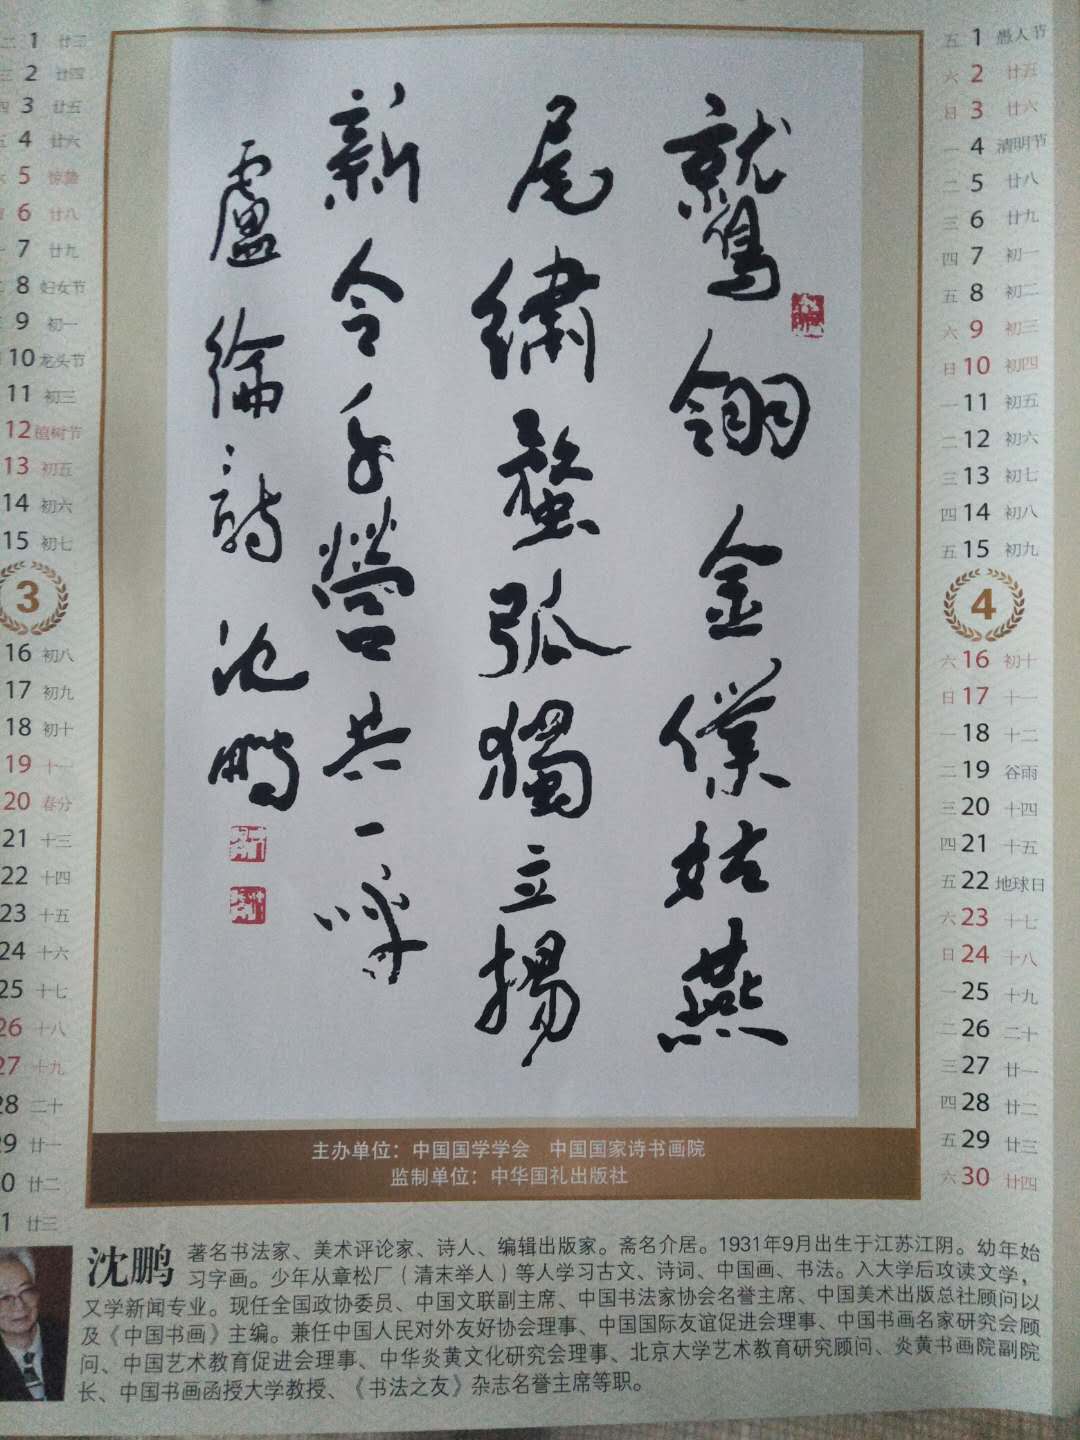 鷲翎金僕姑燕
尾繡蝥弧獨立揚
新令千營共一呼
盧綸詩 沈鵬
1 廿三
2 廿四
3 廿五
4 廿六
5 惊蛰
6 廿八
7 廿九
8 妇女节
9 初一
10 龙头节
11 初三
12 植树节
13 初五
14 初六
15 初七
3
16 初八
17 初九
18 初十
19 十一
20 春分
21 十三
22 十四
23 十五
24 十六
25 十七
26 十八
27 十九
28 二十
29 廿一
30 廿二
31 廿三
五 1 愚人节
六 2 廿五
日 3 廿六
一 4 清明节
二 5 廿八
三 6 廿九
四 7 初一
五 8 初二
六 9 初三
日 10 初四
一 11 初五
二 12 初六
三 13 初七
四 14 初八
五 15 初九
4
六 16 初十
日 17 十一
一 18 十二
二 19 谷雨
三 20 十四
四 21 十五
五 22 地球日
六 23 十七
日 24 十八
一 25 十九
二 26 二十
三 27 廿一
四 28 廿二
五 29 廿三
六 30 廿四
主办单位：中国国学学会 中国国家诗书画院
监制单位：中华国礼出版社
沈鹏 著名书法家、美术评论家、诗人、编辑出版家。斋名介居。1931年9月出生于江苏江阴。幼年始
习字画。少年从章松厂（清末举人）等人学习古文、诗词、中国画、书法。入大学后攻读文学，
又学新闻专业。现任全国政协委员、中国文联副主席、中国书法家协会名誉主席、中国美术出版总社顾问以
及《中国书画》主编。兼任中国人民对外友好协会理事、中国国际友谊促进会理事、中国书画名家研究会顾
问、中国艺术教育促进会理事、中华炎黄文化研究会理事、北京大学艺术教育研究顾问、炎黄书画院副院
长、中国书画函授大学教授、《书法之友》杂志名誉主席等职。